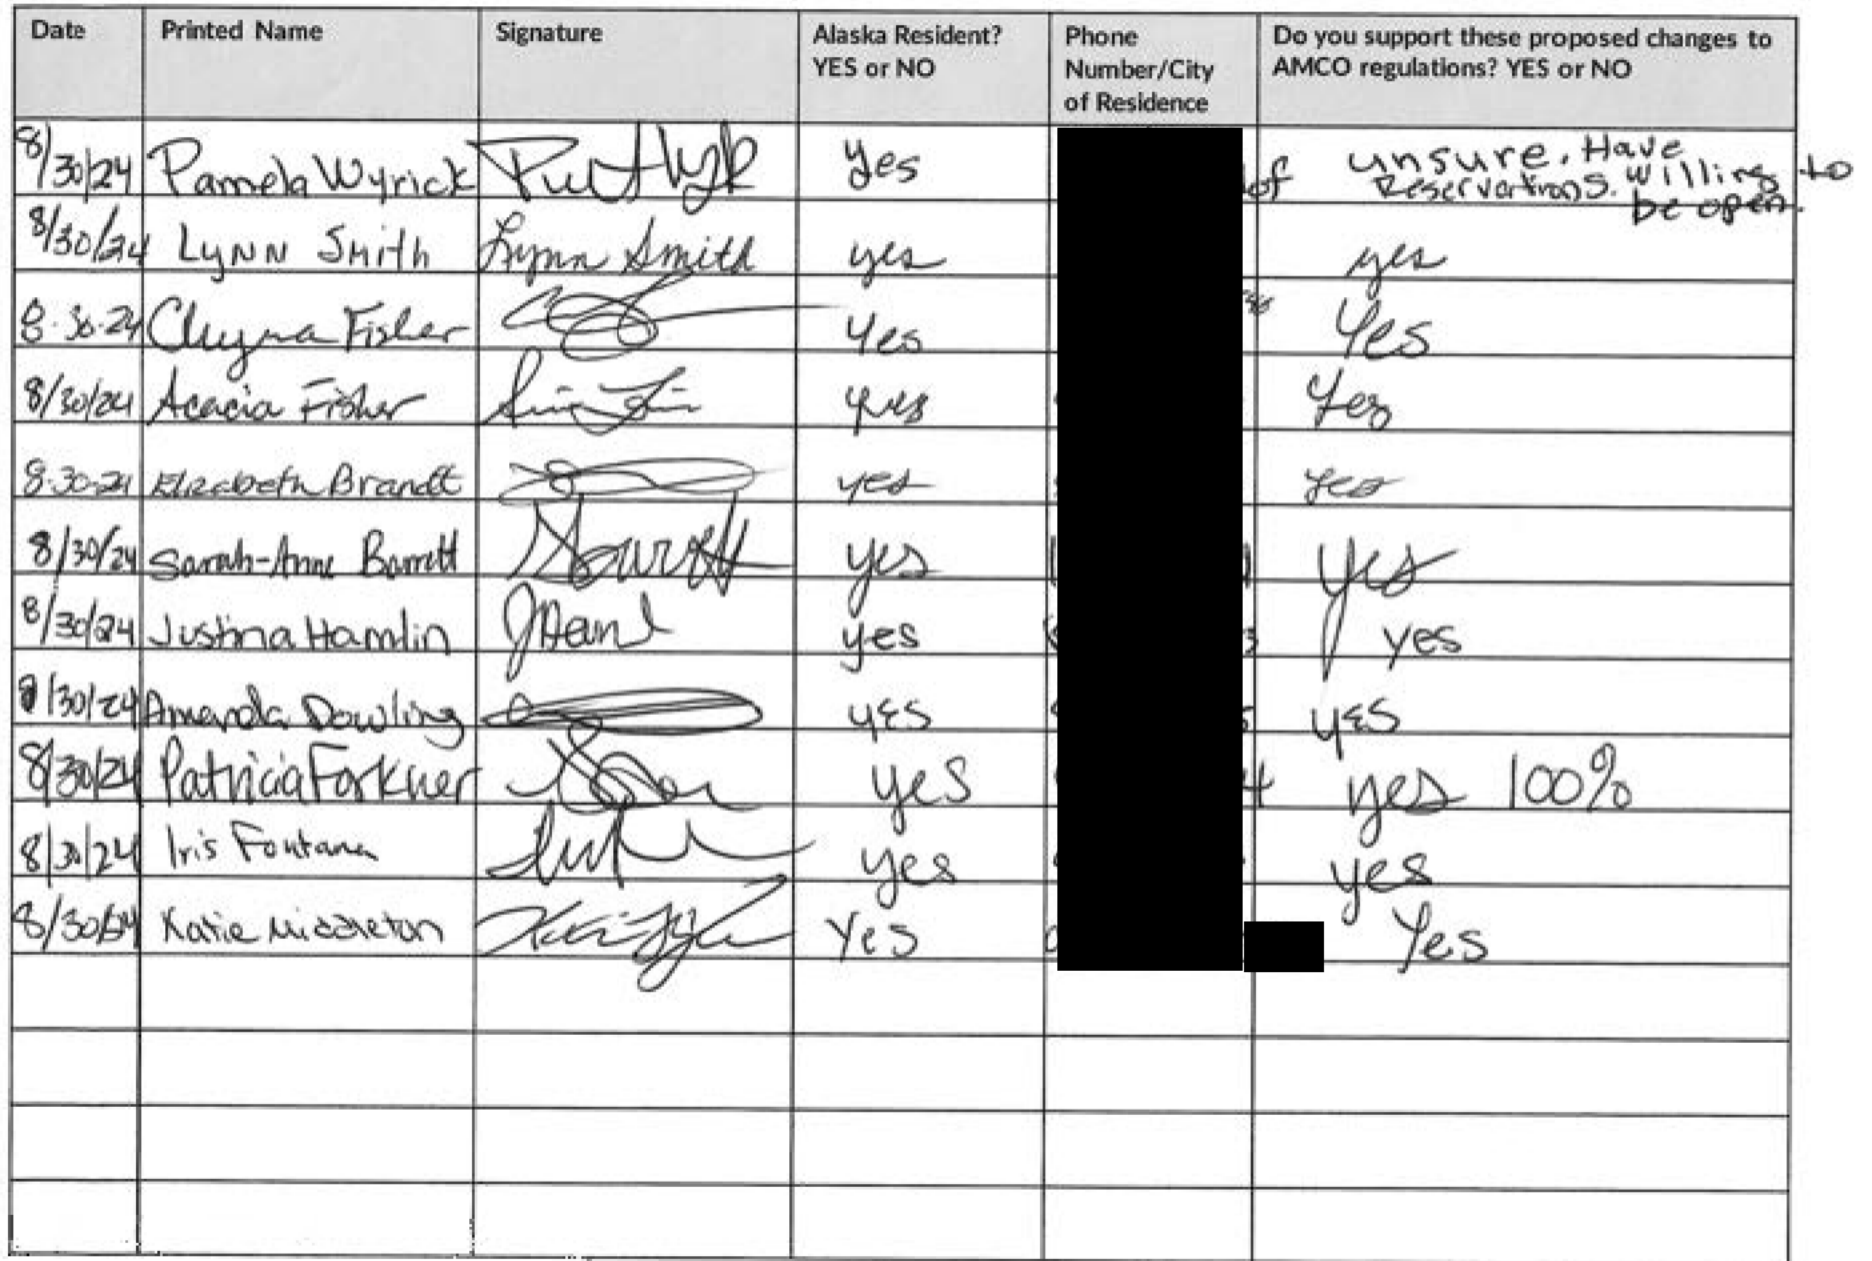 Date Printed Name Signature Alaska Resident? YES or NO Phone Number/City of Residence Do you support these proposed changes to AMCO regulations? YES or NO
8/30/24 Pamela Wyrick yes of unsure. Have Reservations. willing to be open.
8/30/24 LYNN Smith Lynn Smith yes yes
8-30-24 Chyna Fisher Yes Yes
8/30/24 Acacia Fisher yes Yes
8-30-24 Elizabeth Brandt yes yes
8/30/24 Sarah-Anne Barrett yes yes
8/30/24 Justina Hamlin yes 3 yes
8/30/24 Amanda Dowling yes yes
8/30/24 Patricia Forkner yes 4 yes 100%
8/30/24 Iris Fontana yes yes
8/30/24 Katie Middleton Yes Yes